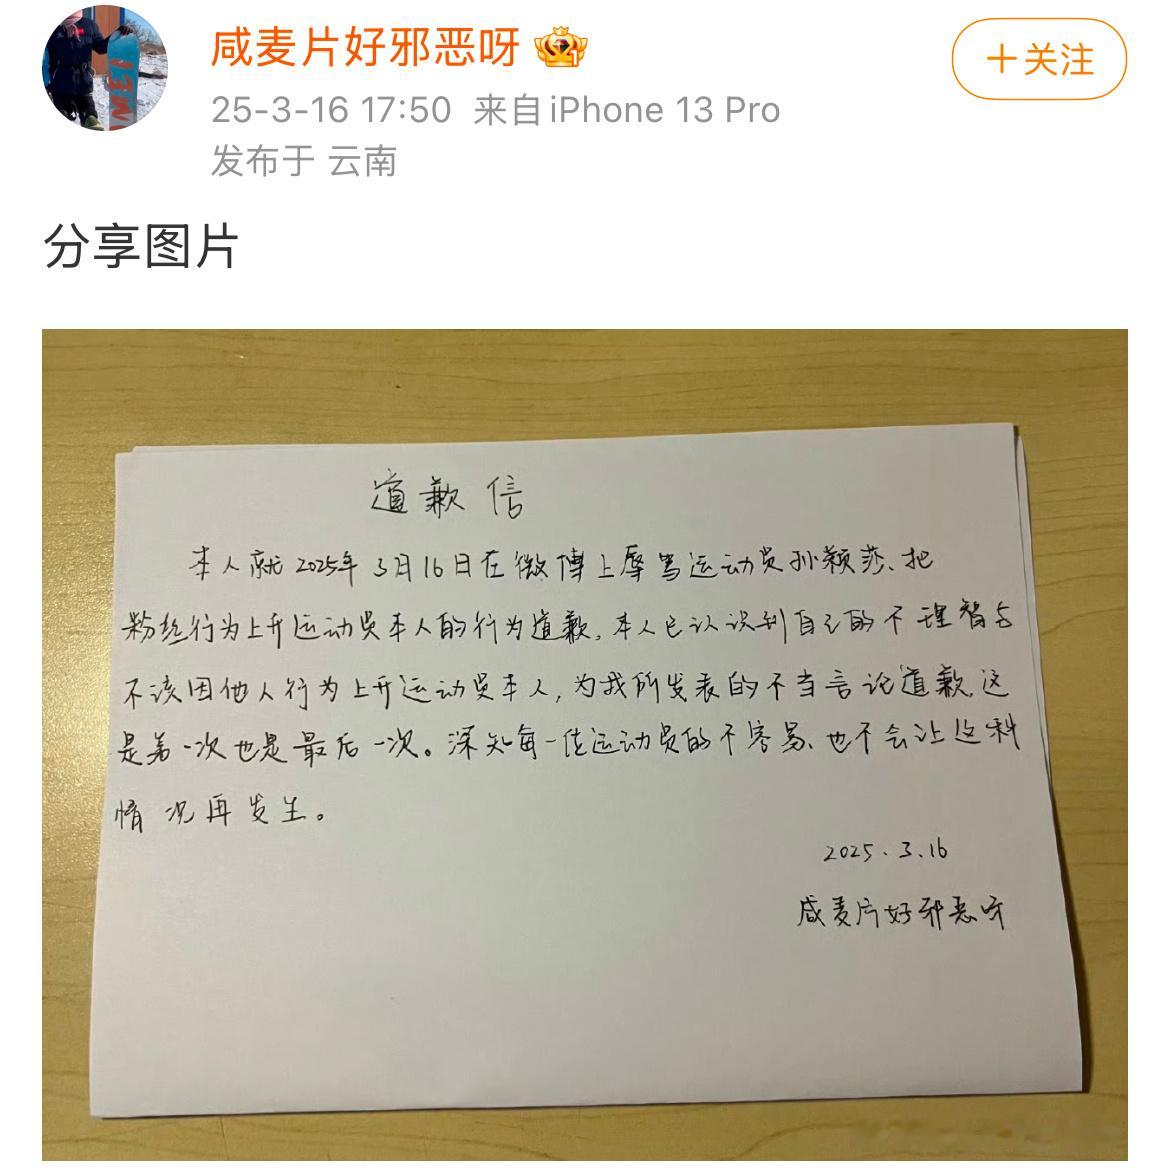 咸麦片好邪恶呀
+关注
25-3-16 17:50 来自 iPhone 13 Pro
发布于 云南
分享图片
道歉信
本人就2025年3月16日在微博上辱骂运动员孙颖莎、把
粉丝行为上升运动员本人的行为道歉,本人已认识到自己的不理智与
不该因他人行为上升运动员本人,为我所发表的不当言论道歉,这
是第一次也是最后一次。深知每一位运动员的不容易、也不会让这种
情况再发生。
2025.3.16
咸麦片好邪恶呀